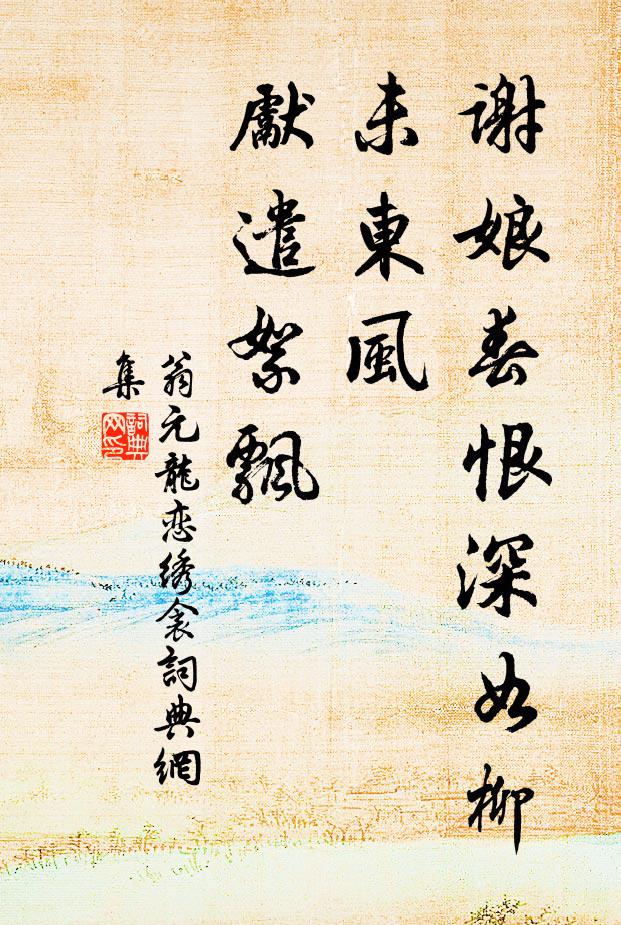 謝娘春恨深如柳
未東風
獻遣絮飄
翁元龍恋绣衾詞典網
集
詞典
网印